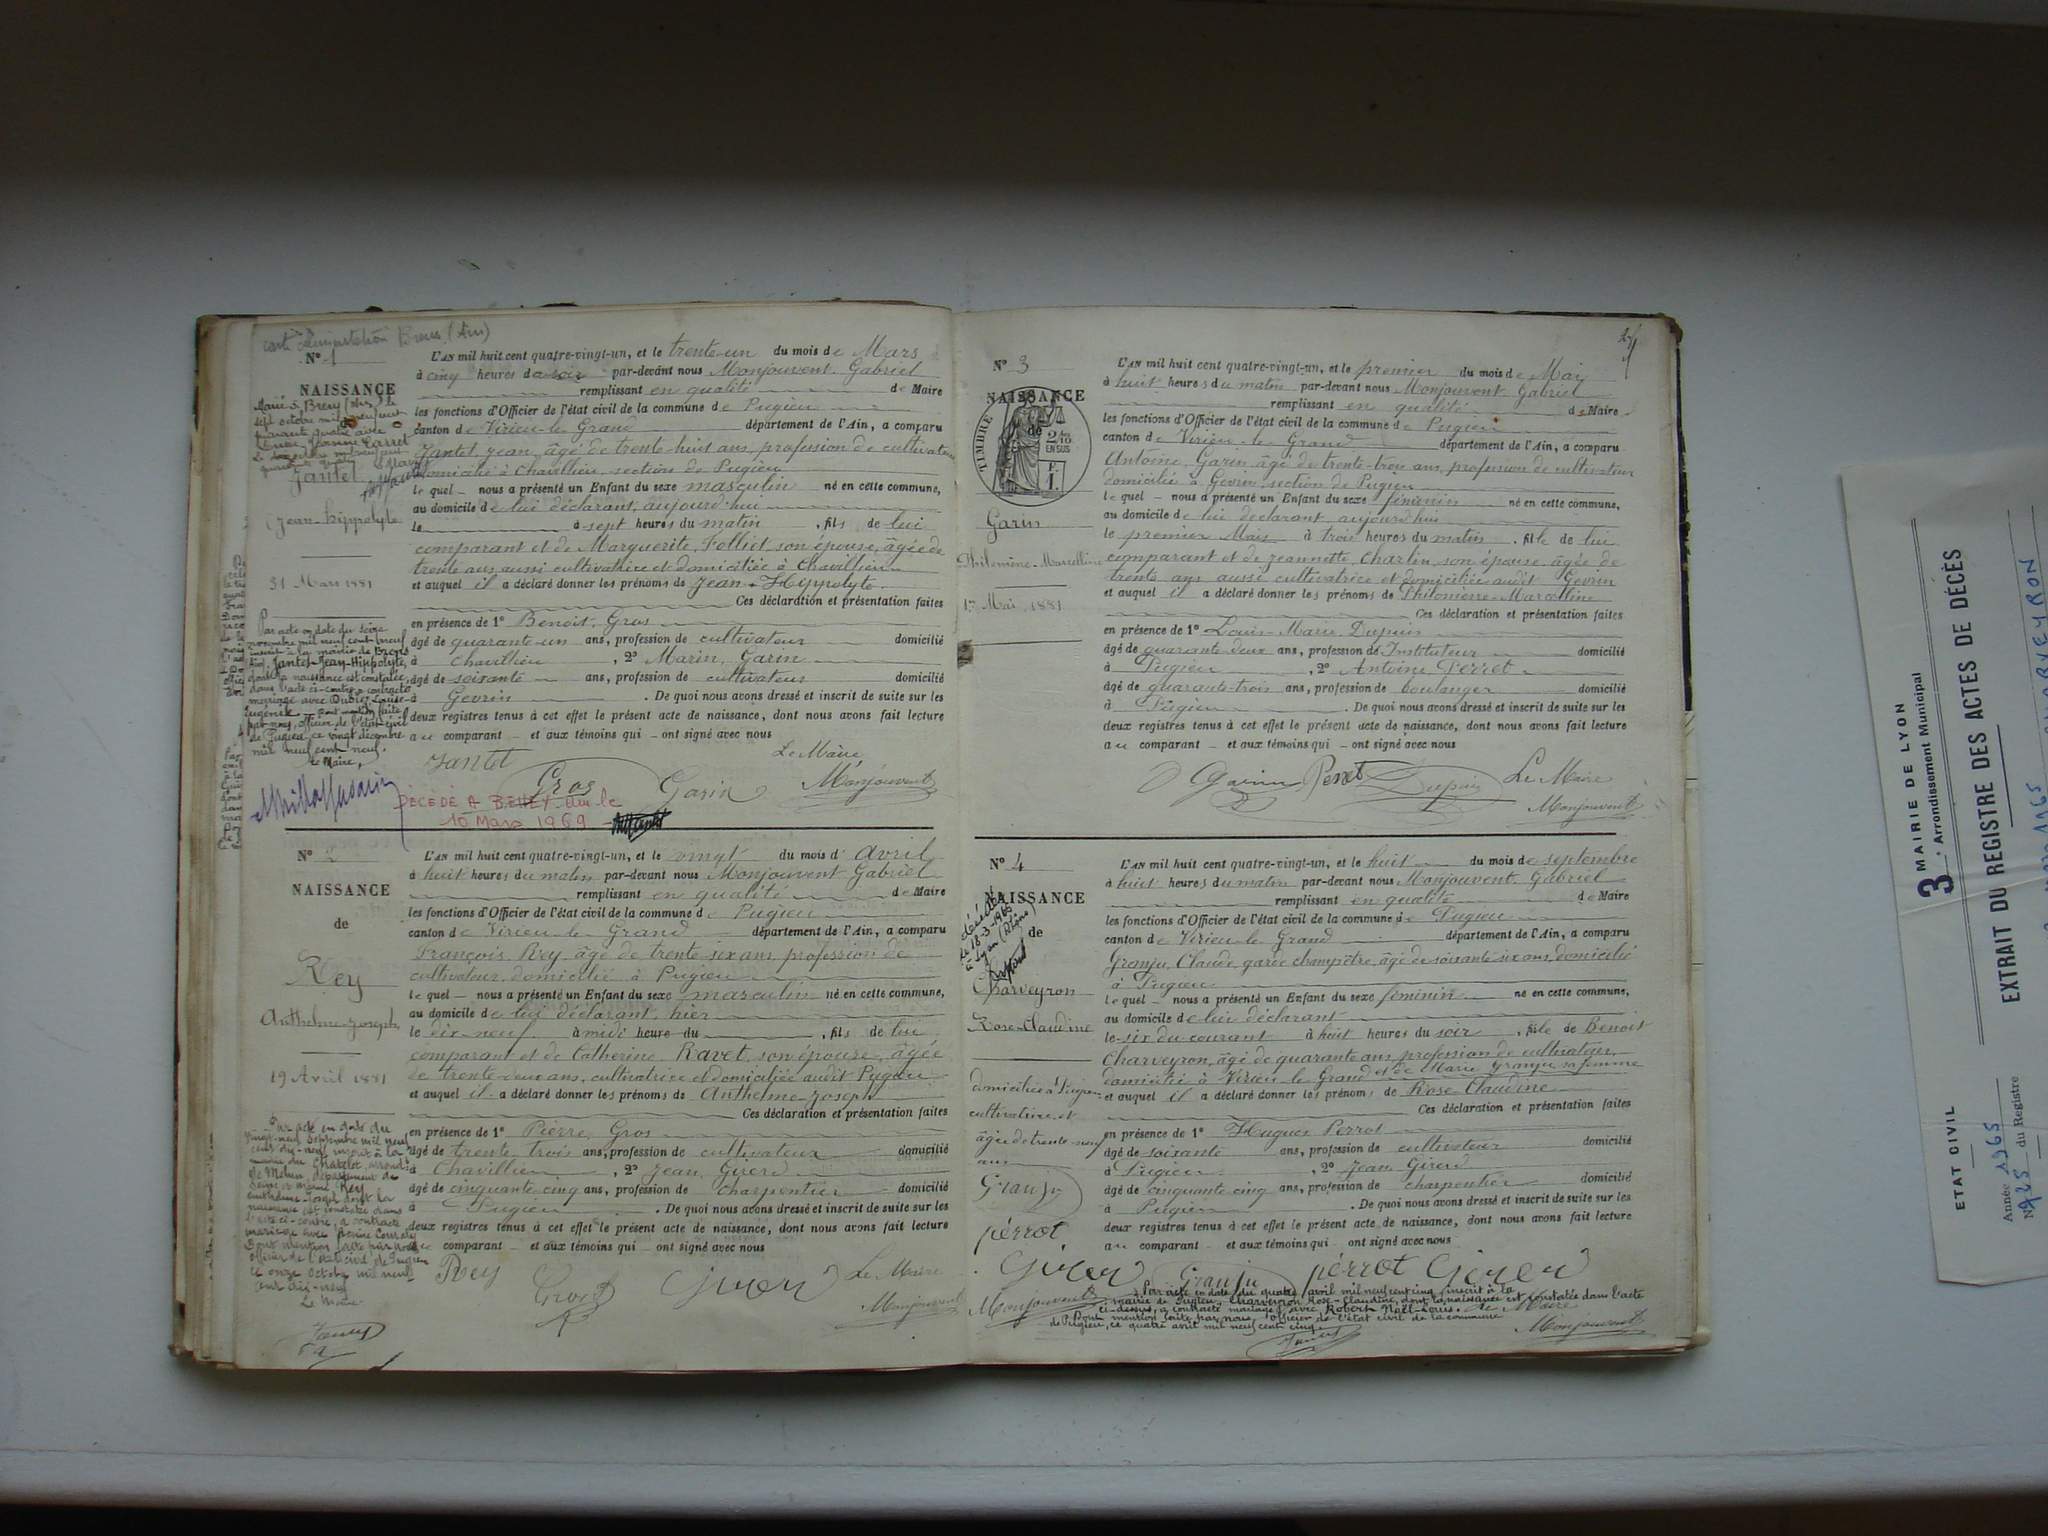 carte d'alimentation Brens (Ain)
N° 1
NAISSANCE
de
Jantet
Jean-Hippolyte
31 Mars 1881
Par acte en date du seize
novembre mil neuf cent neuf
inscrit à la mairie de Brens
Jantet Jean-Hippolyte,
dont la naissance est constatée
dans l'acte ci-contre a contracté
mariage avec Dubier Louise
Eugénie - dont mention faite
par nous, officier de l'état-civil
de Pugieu, ce vingt décembre
mil neuf cent neuf.
Le Maire,
L'AN mil huit cent quatre-vingt-un, et le trente-un du mois de Mars
à cinq heures du soir par-devant nous Monjouvent Gabriel
remplissant en qualité de Maire
les fonctions d'Officier de l'état civil de la commune de Pugieu
canton de Virieu-le-Grand département de l'Ain, a comparu
Jantet Jean, âgé de trente-huit ans, profession de cultivateur
domicilié à Chavillieu, section de Pugieu
lequel nous a présenté un Enfant du sexe masculin né en cette commune,
au domicile de lui déclarant, aujourd'hui
le à sept heures du matin, fils de lui
comparant et de Marguerite Folliet, son épouse, âgée de
trente ans, aussi cultivatrice et domiciliée à Chavillieu
et auquel il a déclaré donner les prénoms de Jean-Hippolyte
Ces déclaration et présentation faites
en présence de 1° Benoît Gros
âgé de quarante-un ans, profession de cultivateur domicilié
à Chavillieu, 2° Marin Garin
âgé de soixante ans, profession de cultivateur domicilié
à Gevrin. De quoi nous avons dressé et inscrit de suite sur les
deux registres tenus à cet effet le présent acte de naissance, dont nous avons fait lecture
au comparant et aux témoins qui ont signé avec nous
Jantet Gros Garin Le Maire
Monjouvent
DÉCÉDÉ A BELLEY Ain le
10 Mars 1969
N° 2
NAISSANCE
de
Rey
Anthelme-Joseph
19 Avril 1881
Par acte en date du
vingt-neuf Septembre mil neuf
cent dix-neuf inscrit à la
mairie du Chatelet, arrondt
de Melun, département de
Seine et Marne, Rey
Anthelme-Joseph dont la
naissance est constatée dans
l'acte ci-contre, a contracté
mariage avec
Dont mention faite par nous
officier de l'état civil de Pugieu
ce onze Octobre mil neuf
cent dix-neuf
Le Maire
L'AN mil huit cent quatre-vingt-un, et le vingt du mois d'Avril
à huit heures du matin par-devant nous Monjouvent Gabriel
remplissant en qualité de Maire
les fonctions d'Officier de l'état civil de la commune de Pugieu
canton de Virieu-le-Grand département de l'Ain, a comparu
François Rey, âgé de trente-six ans, profession de
cultivateur, domicilié à Pugieu
lequel nous a présenté un Enfant du sexe masculin né en cette commune,
au domicile de lui déclarant, hier
le dix-neuf à midi heure du, fils de lui
comparant et de Catherine Ravet, son épouse, âgée
de trente-deux ans, cultivatrice et domiciliée audit Pugieu
et auquel il a déclaré donner les prénoms de Anthelme-Joseph
Ces déclaration et présentation faites
en présence de 1° Pierre Gros
âgé de trente-trois ans, profession de cultivateur domicilié
à Chavillieu, 2° Jean Girerd
âgé de cinquante-cinq ans, profession de charpentier domicilié
à Pugieu. De quoi nous avons dressé et inscrit de suite sur les
deux registres tenus à cet effet le présent acte de naissance, dont nous avons fait lecture
comparant et aux témoins qui ont signé avec nous
Rey Gros Girerd Le Maire
Monjouvent
N° 3
NAISSANCE
de
TIMBRE
2/10 EN SUS
F. 1.
Garin
Philomène-Marcelline
1er Mai 1881
L'AN mil huit cent quatre-vingt-un, et le premier du mois de Mai
à huit heures du matin par-devant nous Monjouvent Gabriel
remplissant en qualité de Maire
les fonctions d'Officier de l'état civil de la commune de Pugieu
canton de Virieu-le-Grand département de l'Ain, a comparu
Antoine Garin, âgé de trente-trois ans, profession de cultivateur
domicilié à Gevrin, section de Pugieu
lequel nous a présenté un Enfant du sexe féminin né en cette commune,
au domicile de lui déclarant, aujourd'hui
le premier Mai à trois heures du matin, fille de lui
comparant et de Jeannette Charlin, son épouse, âgée de
trente ans aussi cultivatrice et domiciliée audit Gevrin
et auquel il a déclaré donner les prénoms de Philomène-Marcelline
Ces déclaration et présentation faites
en présence de 1° Louis-Marie Dupuis
âgé de quarante-deux ans, profession de Instituteur domicilié
à Pugieu, 2° Antoine Perret
âgé de quarante-trois ans, profession de boulanger domicilié
à Pugieu. De quoi nous avons dressé et inscrit de suite sur les
deux registres tenus à cet effet le présent acte de naissance, dont nous avons fait lecture
au comparant et aux témoins qui ont signé avec nous
Garin Perret Dupuis Le Maire
Monjouvent
N° 4
NAISSANCE
de
décédée
le 18-3-1965
à Lyon (Rhône)
Charveyron
Rose-Claudine
domiciliée à Pugieu
cultivatrice et
âgée de trente-neuf
ans
Granju
pérrot
L'AN mil huit cent quatre-vingt-un, et le huit du mois de septembre
à huit heures du matin par-devant nous Monjouvent Gabriel
remplissant en qualité de Maire
les fonctions d'Officier de l'état civil de la commune de Pugieu
canton de Virieu-le-Grand département de l'Ain, a comparu
Granju Claude, garde champêtre, âgé de soixante-six ans, domicilié
à Pugieu
lequel nous a présenté un Enfant du sexe féminin né en cette commune,
au domicile de lui déclarant
le six du courant à huit heures du soir, fille de Benoît
Charveyron, âgé de quarante ans, profession de cultivateur,
domicilié à Virieu-le-Grand et de Marie Granju sa femme
et auquel il a déclaré donner les prénoms de Rose Claudine
Ces déclaration et présentation faites
en présence de 1° Hugues Perrot
âgé de soixante ans, profession de cultivateur domicilié
à Pugieu, 2° Jean Girerd
âgé de cinquante-cinq ans, profession de charpentier domicilié
à Pugieu. De quoi nous avons dressé et inscrit de suite sur les
deux registres tenus à cet effet le présent acte de naissance, dont nous avons fait lecture
au comparant et aux témoins qui ont signé avec nous
Girerd Granju pérrot Girerd
Monjouvent
Par acte en date du quatre avril mil neuf cent cinq, inscrit à la
mairie de Pugieu, Charveyron Rose-Claudine, dont la naissance est constatée dans l'acte
ci-dessus, a contracté mariage avec Robert Noël-Louis. Le Maire
Dont mention faite par nous, officier de l'état civil de la commune
de Pugieu, ce quatre avril mil neuf cent cinq
Monjouvent
MAIRIE DE LYON
3e Arrondissement Municipal
EXTRAIT DU REGISTRE DES ACTES DE DÉCÈS
ETAT CIVIL
Année 1965
N° 925 du Registre
CHARVEYRON